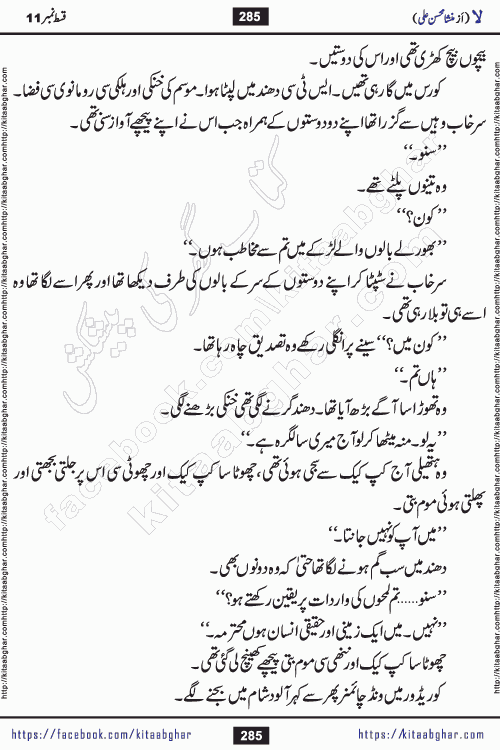 لا (از منشا محسن علی) 285 قسط نمبر 11
بیچوں بیچ کھڑی تھی اور اس کی دوستیں۔
کورس میں گا رہی تھیں۔ ایس ٹی سی دھند میں لپٹا ہوا۔ موسم کی خنکی اور ہلکی سی رومانوی سی فضا۔
سرخاب وہیں سے گزرا تھا اپنے دو دوستوں کے ہمراہ جب اس نے اپنے پیچھے آواز سنی تھی۔
’’سنو۔‘‘
وہ تینوں پلٹے تھے۔
’’کون؟‘‘
’’بھورے بالوں والے لڑکے میں تم سے مخاطب ہوں۔‘‘
سرخاب نے سٹپٹا کر اپنے دوستوں کے سر کے بالوں کی طرف دیکھا تھا اور پھر اسے لگا تھا وہ
اسے ہی تو بلا رہی تھی۔
’’کون میں؟‘‘ سینے پر انگلی رکھے وہ تصدیق چاہ رہا تھا۔
’’ہاں تم۔‘‘
وہ تھوڑا سا آگے بڑھ آیا تھا۔ دھند گرنے لگی تھی خنکی بڑھنے لگی۔
’’یہ لو۔ منہ میٹھا کر لو آج میری سالگرہ ہے۔‘‘
وہ ہتھیلی آج کپ کیک سے سجی ہوئی تھی، چھوٹا سا کپ کیک اور چھوٹی سی اس پر جلتی بجھتی اور
پھلتی ہوئی موم بتی۔
’’میں آپ کو نہیں جانتا۔‘‘
دھند میں سب گم ہونے لگا تھا حتیٰ کہ وہ دونوں بھی۔
’’سنو...... تم لمحوں کی واردات پر یقین رکھتے ہو؟‘‘
’’نہیں۔ میں ایک زمینی اور حقیقی انسان ہوں محترمہ۔‘‘
چھوٹا سا کپ کیک اور ننھی سی موم بتی پیچھے کھینچ لی گئی تھی۔
کوریڈور میں ونڈ چائمنر پھر سے کہر آلود شام میں بجنے لگے۔
https://facebook.com/kitaabghar 285 https://kitaabghar.com